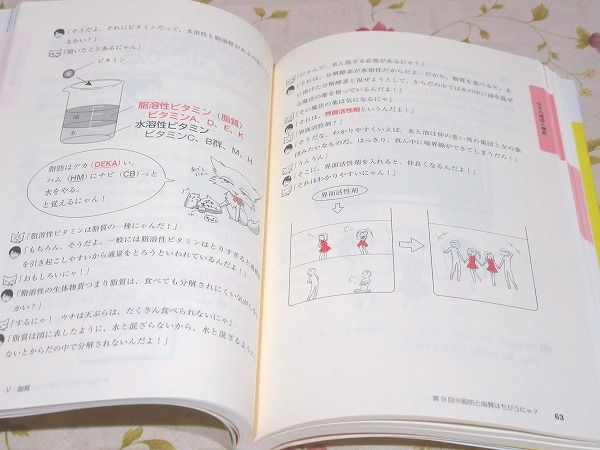 「そうだよ。それにビタミンだって、水溶性と脂溶性があるの
るかい？」
「聞いたことあるにゃん」
ビタミン
油
水
脂溶性ビタミン（脂質）
ビタミンA、D、E、K
水溶性ビタミン
ビタミンC、B群、M、H
脂肪はデカ（DEKA）い。
ハム（HM）にチビ（CB）っと
水をやる。
と覚えるにゃん！
「脂溶性ビタミンは脂質の一種にゃんだ！」
「もちろん、そうだよ。一般には脂溶性ビタミンはとりすぎると
を引き起こしやすいから適量をとろうといわれているんだよ！」
「おもしろいにゃ！」
「脂溶性の生体物質つまり脂質は、食べても分解されにくい気がし
かい？」
「するにゃ！ ウチは天ぷらは、たくさん食べられないにゃ」
「脂質は図に表したように、水と混ざらないから、水と混ざるように
ないとからだの中で分解されないんだよ！」
V 脂質
「にゃんで、水と混ざる必要があるにゃ？」
「それは、分解酵素が水溶性だからだよ。だから、脂質を食べると、水
に溶けた分解酵素と混ぜようとして、からだの中では水の中に油を混ぜ
る魔法の薬を使っているんだよ！」
「その魔法の薬は気になるにゃ」
「それは、界面活性剤というんだよ！」
「界面活性剤？」
「そうだな、わかりやすくいえば、水と油は仲の悪い男の集団と女の集
団みたいなものだ。はっきり、真ん中に境界線ができてしまうだろ！」
「うんうん」
「そこに、界面活性剤を入れると、仲良くなるんだよ！」
「それはわかりやすいにゃん！」
界面活性剤
第9回 脂肪と脂質はちがうにゃ？
63